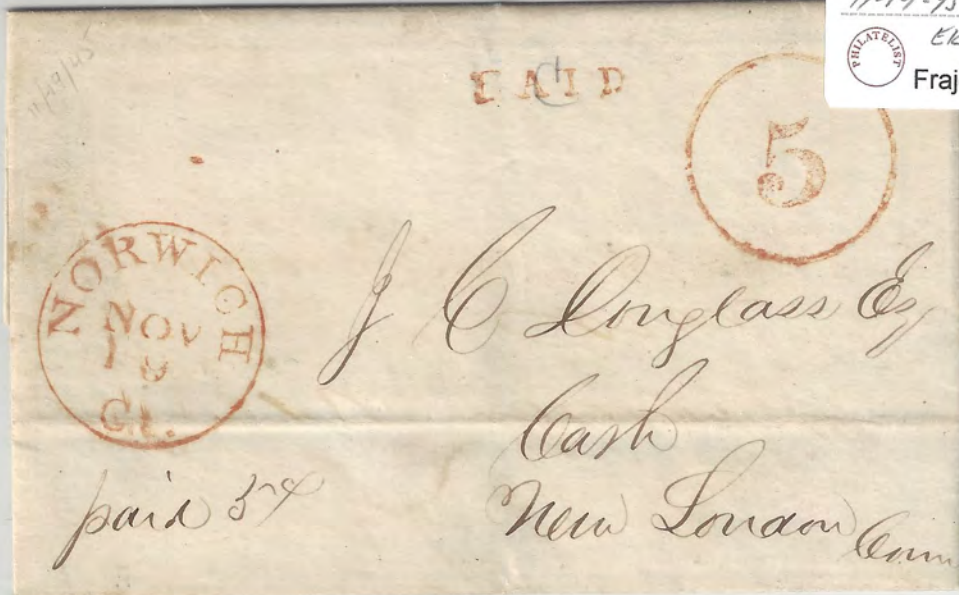 11/19/45
PAID
5
PHILATELIST
Fraj
NORWICH
NOV
19
Ct.
J C Douglass Esq
Cash
New London Conn
paid 5¢